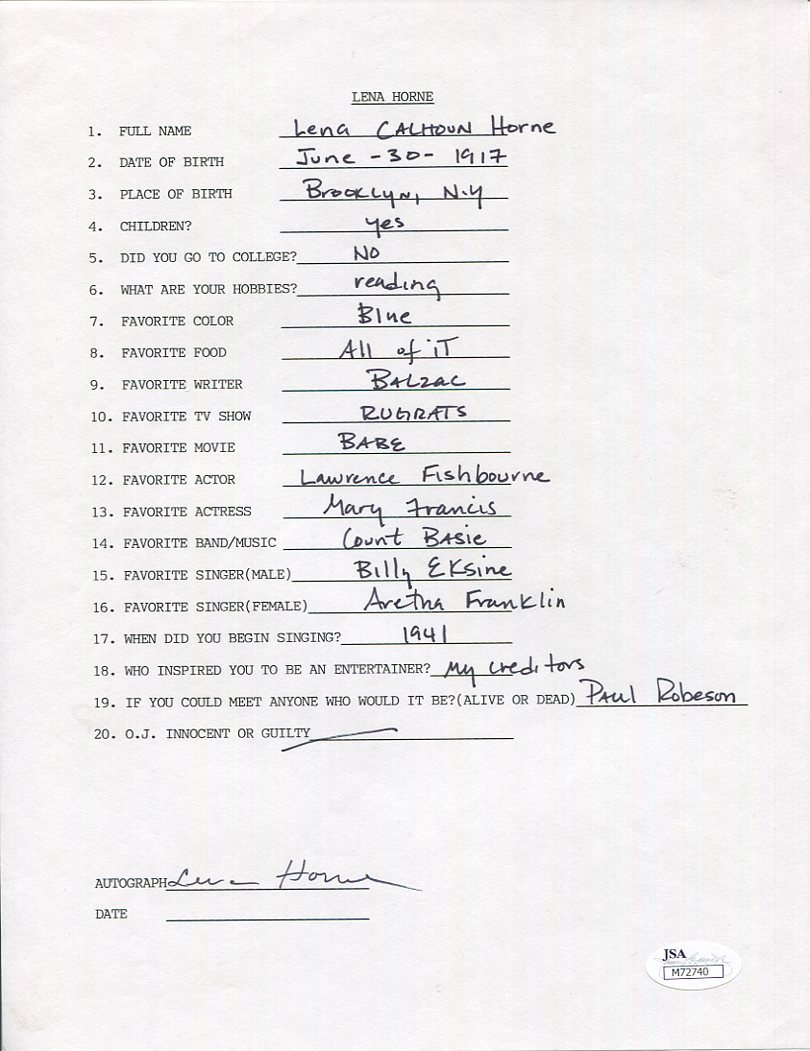 LENA HORNE
1. FULL NAME Lena CALHOUN Horne
2. DATE OF BIRTH June -30- 1917
3. PLACE OF BIRTH Brooklyn, N.Y
4. CHILDREN? yes
5. DID YOU GO TO COLLEGE? NO
6. WHAT ARE YOUR HOBBIES? reading
7. FAVORITE COLOR Blue
8. FAVORITE FOOD All of iT
9. FAVORITE WRITER BALZAC
10. FAVORITE TV SHOW RUGRATS
11. FAVORITE MOVIE BABE
12. FAVORITE ACTOR Lawrence Fishbourne
13. FAVORITE ACTRESS Mary Francis
14. FAVORITE BAND/MUSIC Count BASie
15. FAVORITE SINGER(MALE) Billy EKsine
16. FAVORITE SINGER(FEMALE) Aretha Franklin
17. WHEN DID YOU BEGIN SINGING? 1941
18. WHO INSPIRED YOU TO BE AN ENTERTAINER? My creditors
19. IF YOU COULD MEET ANYONE WHO WOULD IT BE?(ALIVE OR DEAD) PAul Robeson
20. O.J. INNOCENT OR GUILTY
AUTOGRAPH Lena Horne
DATE
JSA
M72740